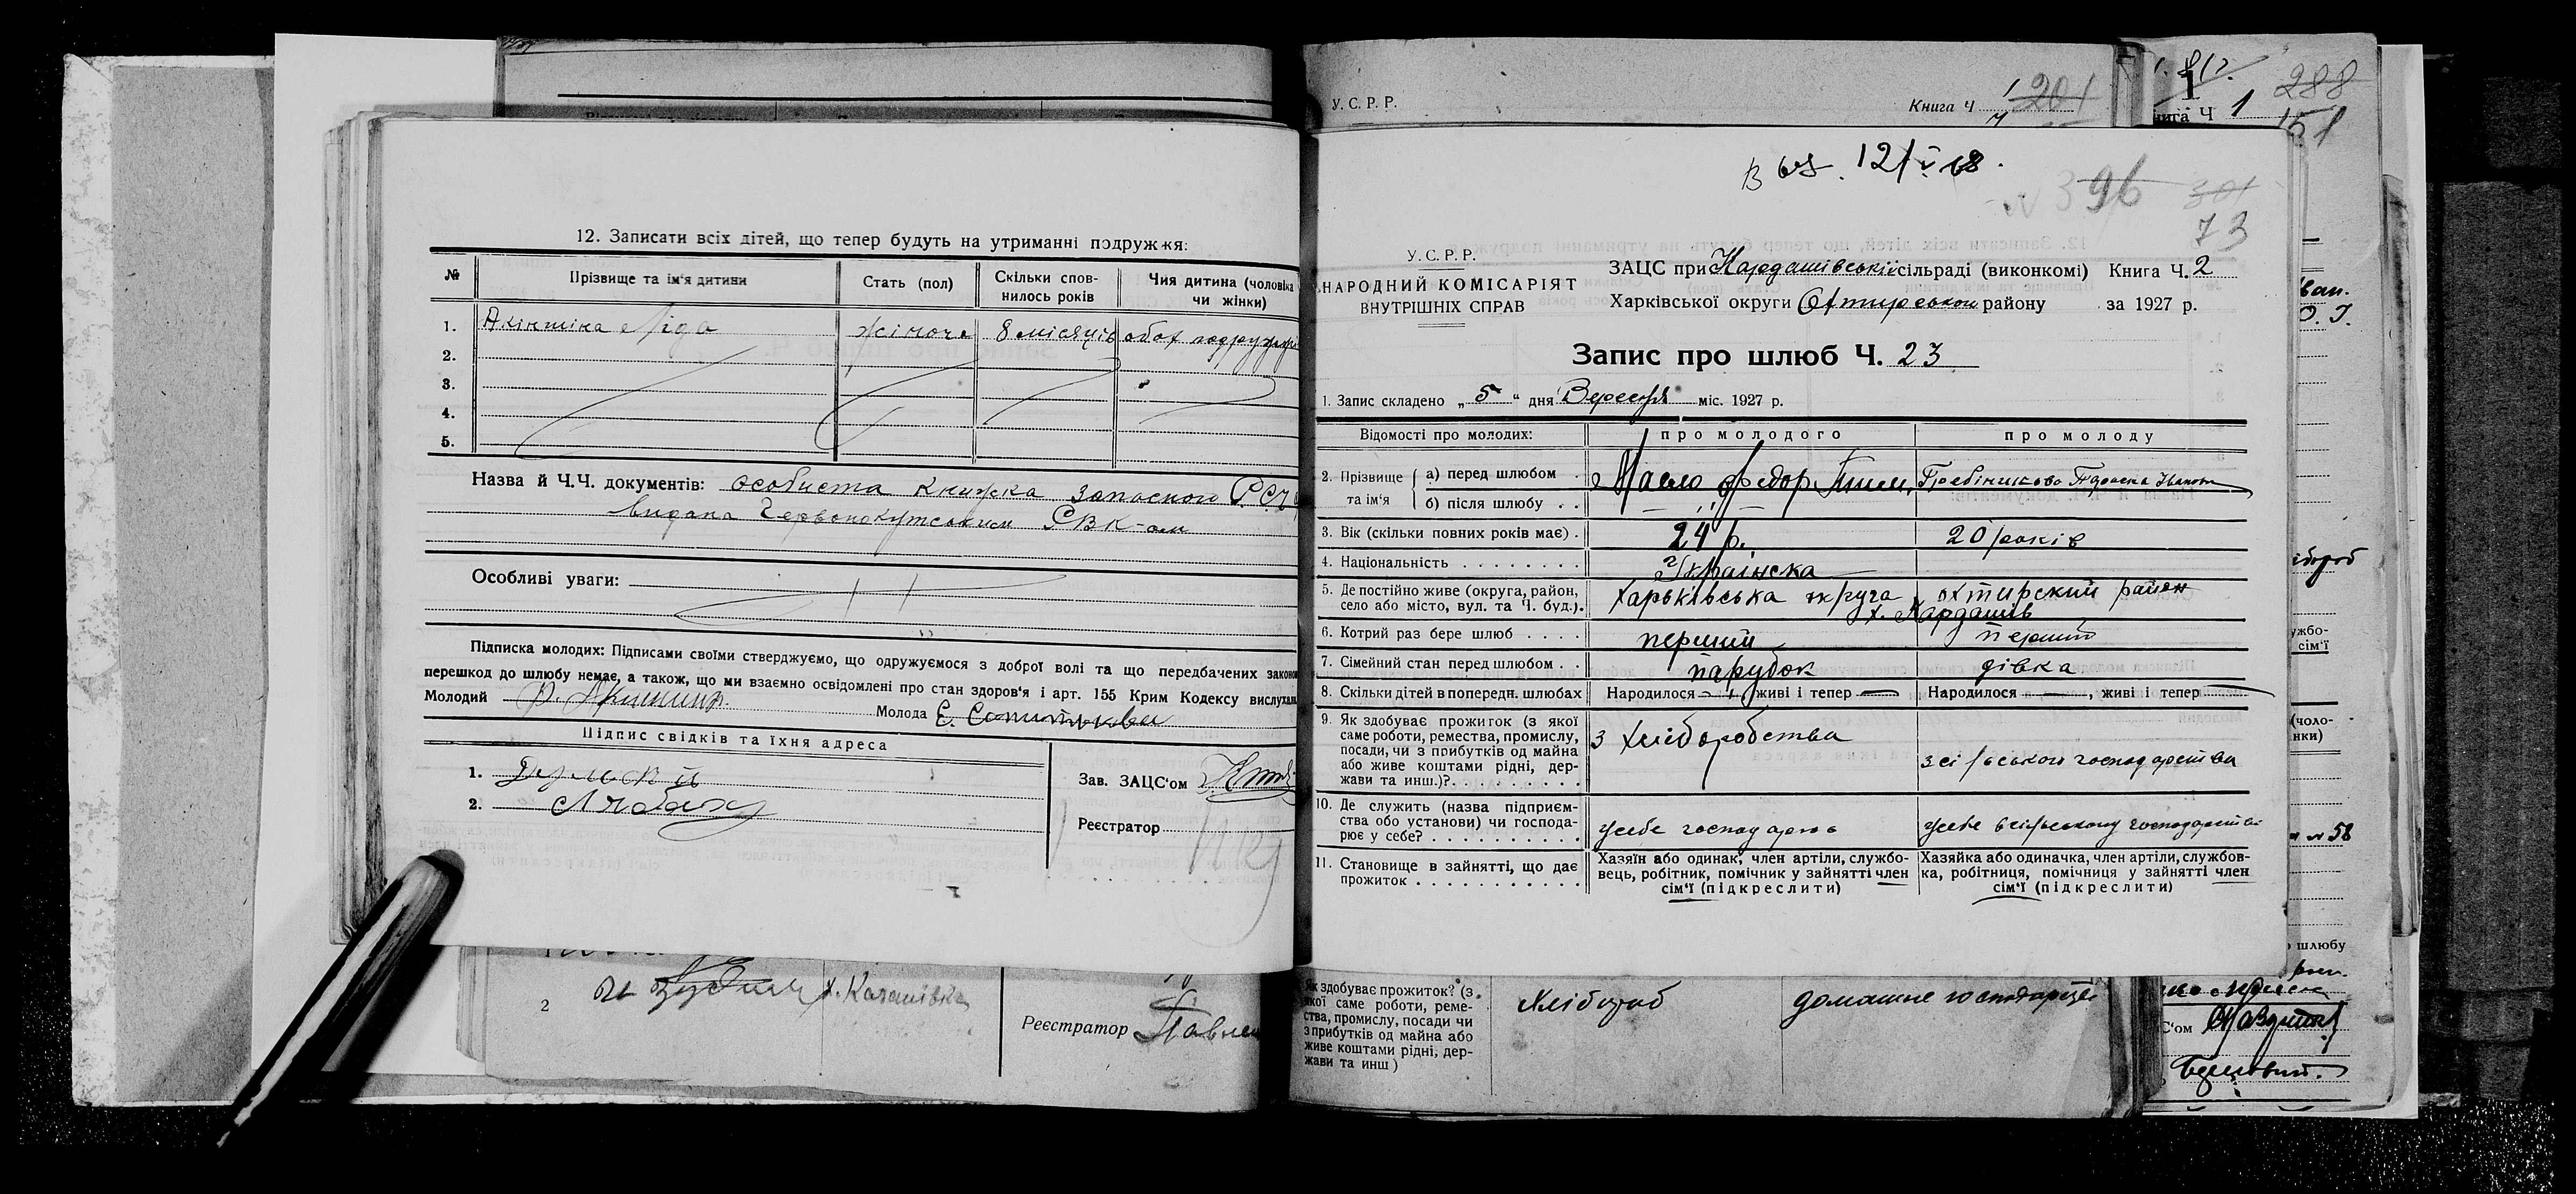 12. Записати всіх дітей, що тепер будуть на утриманні подружжя:
№ Прізвище та ім'я дитини Стать (пол) Скільки спов-нилось років Чия дитина (чоловіка чи жінки)
1. Акіншіна Ліда жіноча 8 місяців обох подружжя
2.
3.
4.
5.
Назва й Ч.Ч. документів: особиста книжка запасного
видана Червонокутським РВК-ом
Особливі уваги:
Підписка молодих: Підписами своїми стверджуємо, що одружуємося з доброї волі та що передбачених законом
перешкод до шлюбу немає, а також, що ми взаємно освідомлені про стан здоров'я і арт. 155 Крим Кодексу вислухали
Молодий Молода Є.
Підпис свідків та їхня адреса
1.
2.
Зав. ЗАЦС'ом
Реєстратор
2 х. Качанівка
Реєстратор
У.С.Р.Р. Книга Ч 201
1 288
нига Ч 1 151
12/V 68.
396 301
73
У.С.Р.Р.
НАРОДНИЙ КОМІСАРІЯТ
ВНУТРІШНІХ СПРАВ
ЗАЦС при Кардашівській сільраді (виконкомі) Книга Ч. 2
Харківської округи Охтирського району за 1927 р.
Запис про шлюб Ч. 23
1. Запис складено „5“ дня Вересня міс. 1927 р.
Відомості про молодих: про молодого про молоду
2. Прізвище та ім'я
а) перед шлюбом Масло Федор Гребінникова Параска Іванов
б) після шлюбу
3. Вік (скільки повних років має) 24 р. 20 років
4. Національність Українська
5. Де постійно живе (округа, район, село або місто, вул. та Ч. буд.) Харьківська округа охтирский район
х. Кардашів
6. Котрий раз бере шлюб перший перший
7. Сімейний стан перед шлюбом парубок дівка
8. Скільки дітей в попередн. шлюбах Народилося —, живі і тепер — Народилося —, живі і тепер —
9. Як здобуває прожиток (з якої
саме роботи, ремества, промислу,
посади, чи з прибутків од майна
або живе коштами рідні, дер-
жави та инш.)?
з хліборобства
з сільського господарства
10. Де служить (назва підприєм-
ства обо установи) чи господа-
рює у себе?
у себе господарює
у себе в сільському господарстві
11. Становище в зайнятті, що дає
прожиток
Хазяїн або одинак, член артіли, службо-
вець, робітник, помічник у зайнятті член
сім'ї (підкреслити)
Хазяйка або одиначка, член артіли, службов-
ка, робітниця, помічниця у зайнятті член
сім'ї (підкреслити)
Як здобуває прожиток? (з
якої саме роботи, реме-
ства, промислу, посади чи
з прибутків од майна або
живе коштами рідні, дер-
жави та инш)
Хлібороб
домашнє господарство
ужбо-
сім'ї
(чоло-
нки)
58
шлюбу
С'ом